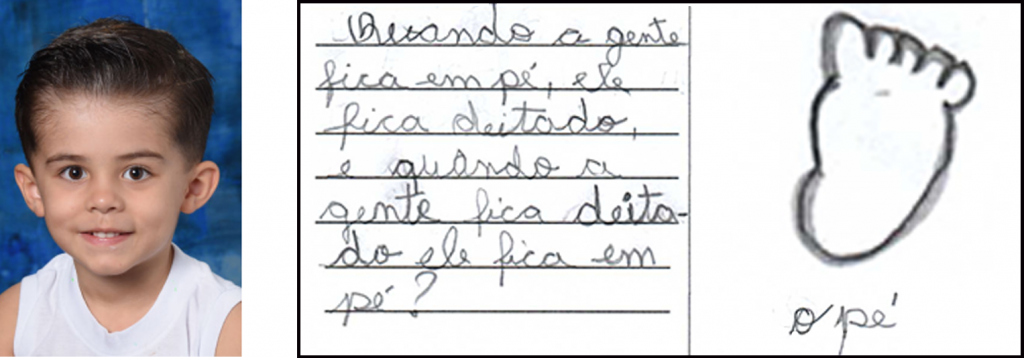 Quando a gente
fica em pé, ele
fica deitado,
e quando a
gente fica deita-
do ele fica em
pé?
o pé